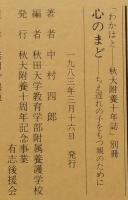 「わかはと」―秋大附養十年誌・別冊
心のまど
―ちえ遅れの子をもつ親のために
一九八三年三月十六日 発行
著者 中村四郎
編者 秋田大学教育学部附属養護学校
発行 秋大附養十周年記念事業
有志後援会